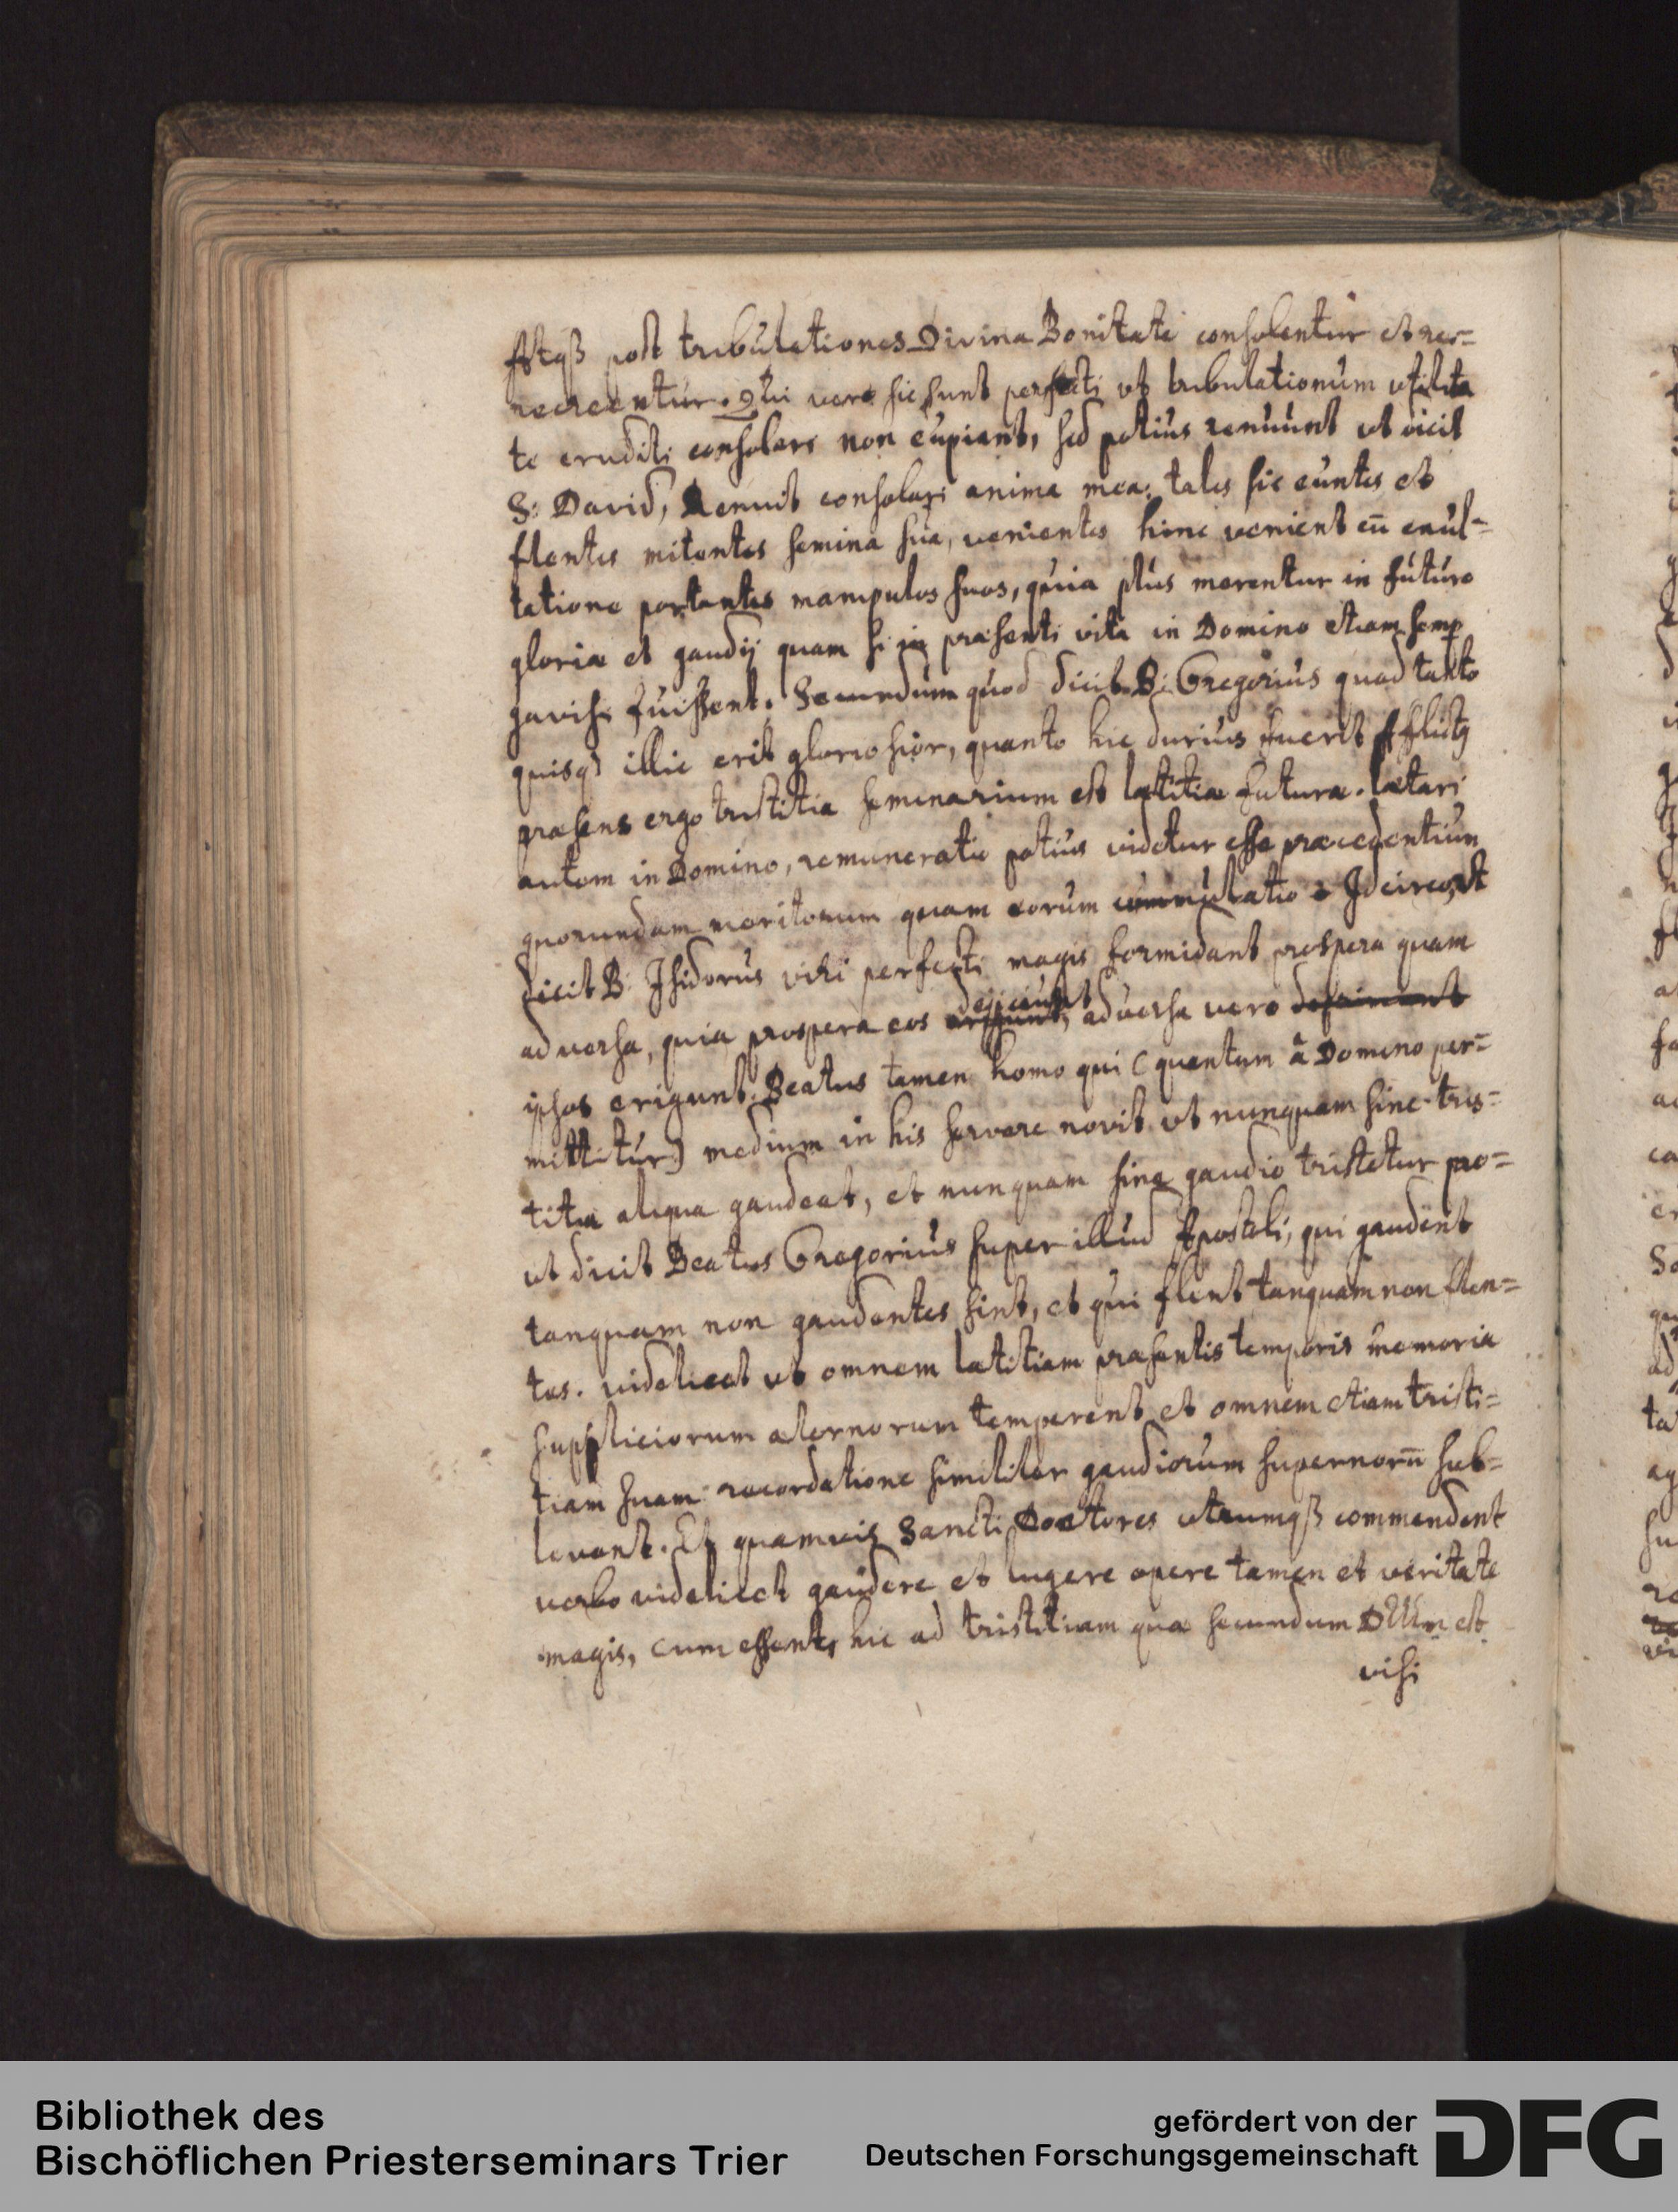 Atqß post tribulationes Divina Bonitate consolentur et rec=
recreentur. Qui vero sic sunt perfecti ut tribulationum utilita
te eruditi consolari non cupiant, sed potius renuunt ut dicit
S: David, Renuit consolari anima mea: tales sic euntes et
flentes mitentes semina sua, venientes hinc venient cū exul=
tatione portantes manipulos suos, quia plus merentur in futuro
gloriæ et gaudij quam si in præsenti vita in Domino etiam semp
gavisi fuissent. Secundum quod dicit B: Gregorius quod tanto
quisq3 illic erit gloriosior, quanto hic durius fuerit afflictq
præsens ergo tristitia seminarium est lætitiæ futuræ. lætari
autem in Domino, remuneratio potius videtur esse præcedentium
quorundam meritorum quam eorum cummulatio Idcirco, ut
dicit B: Isidorus viri perfecti magis formidant prospera quam
dejiciunt
adversa, quia prospera eos adversa vero deprimunt
ipsos erigunt. Beatus tamen homo qui (quantum â Domino per=
mittitur) medium in his servare novit ut nunquam sine tris=
titia aliqua gaudeat, et nunquam sine gaudio tristetur pro=
ut dicit Beatus Gregorius super illud Apostoli, qui gaudent
tanquam non gaudentes sint, et qui flent tanquam non flen=
tes. videlicet ut omnem lætitiam præsentis temporis memoria
suppliciorum æternorum temperent et omnem etiam tristi=
tiam suam recordatione similiter gaudiorum supernorū sub=
levent. Et quamvis Sancti Doctores utrumqß commendent
verbo videlicet gaudere et lugere opere tamen et veritate
magis, cum essent, hic ad tristitiam quæ secundum DEUm est
visi
Bibliothek des
Bischöflichen Priesterseminars Trier
gefördert von der
Deutschen Forschungsgemeinschaft
DFG